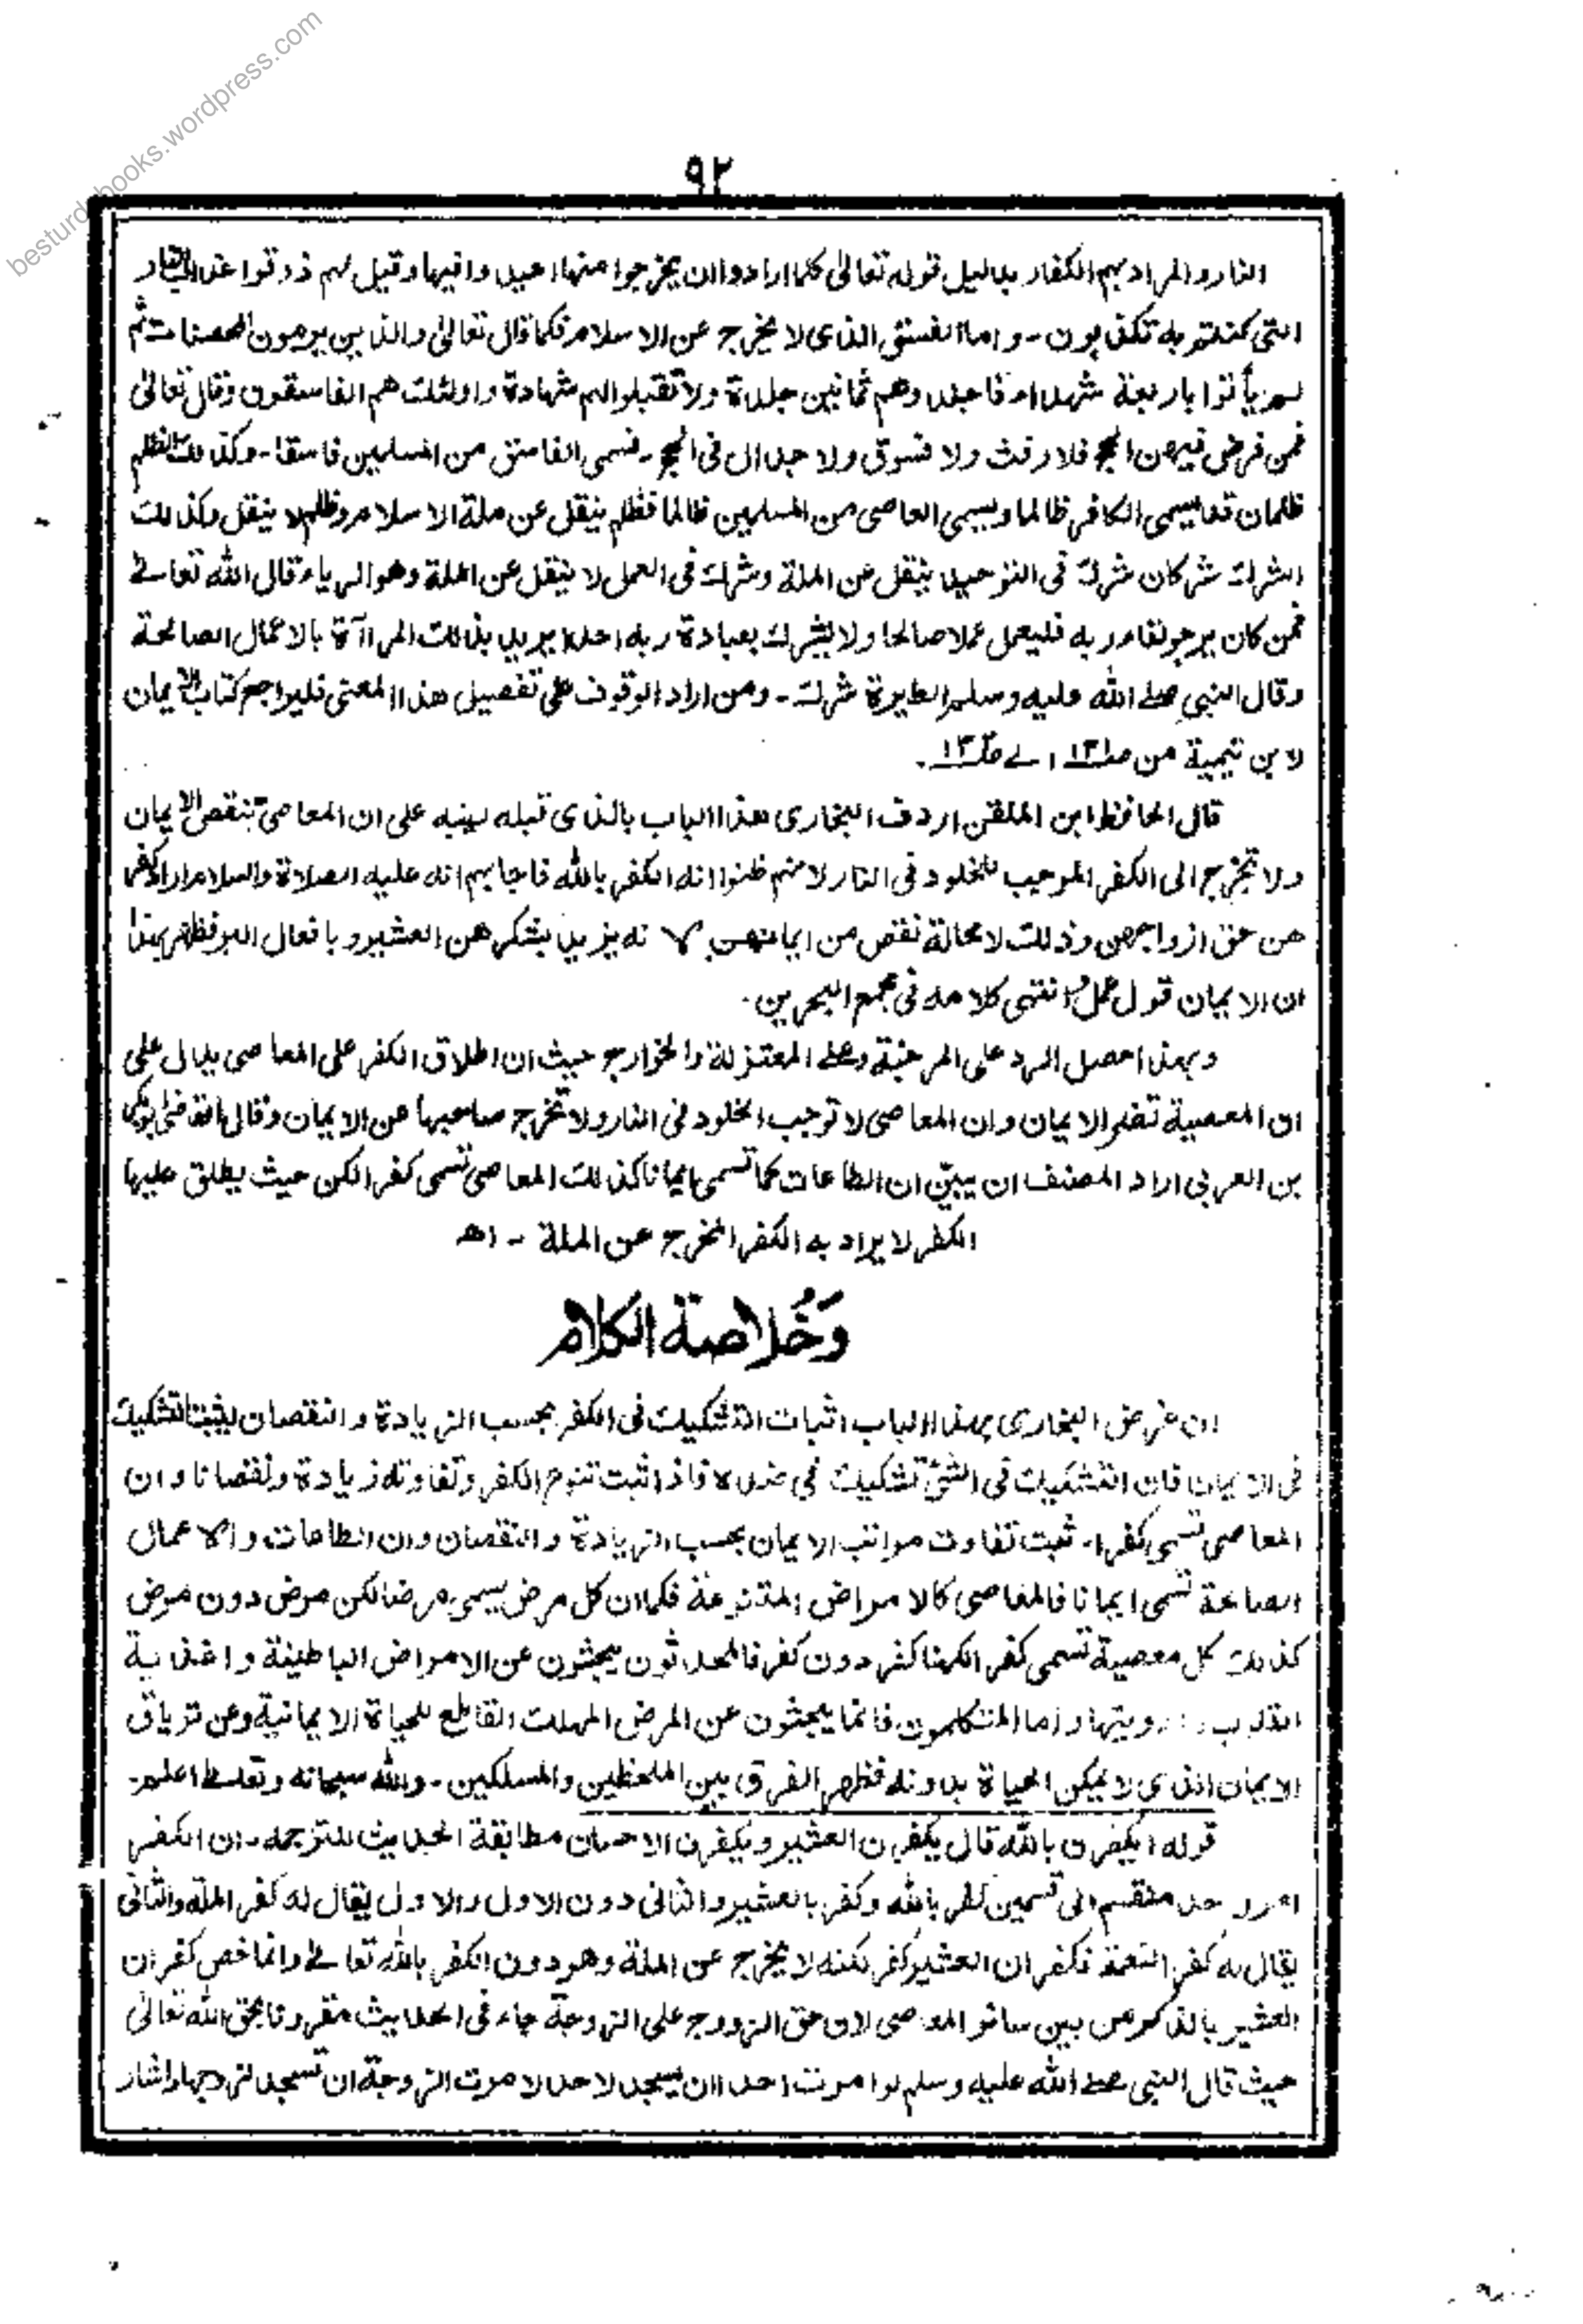 besturdubooks.wordpress.com
٩٢
النار والمراد بهم الكفار بدليل قوله تعالى كلما ارادوا ان يخرجوا منها اعيدوا فيها وقيل لهم ذوقوا عذاب النار
التى كنتم به تكذبون ـ واما الفسق الذى لا يخرج عن الاسلام فكما قال تعالى والذين يرمون المحصنات ثم
لم يأتوا باربعة شهداء فاجلدوهم ثمانين جلدة ولا تقبلوا لهم شهادة واولئك هم الفاسقون وقال تعالى
فمن فرض فيهن الحج فلا رفث ولا فسوق ولا جدال فى الحج ـ فسمى الفاسق من المسلمين فاسقا ـ وكذلك الظلم
ظلمان قد يسمى الكافر ظالما ويسمى العاصى من المسلمين ظالما فظلم ينقل عن ملة الاسلام وظلم لا ينقل وكذلك
الشرك شركان شرك فى التوحيد ينقل عن الملة وشرك فى العمل لا ينقل عن الملة وهو الرياء قال الله تعالى
فمن كان يرجو لقاء ربه فليعمل عملا صالحا ولا يشرك بعبادة ربه احدا يريد بذلك المراآة بالاعمال الصالحة
وقال النبى صلى الله عليه وسلم الطيرة شرك ـ ومن اراد الوقوف على تفصيل هذا المعنى فليراجع كتاب الايمان
لابن تيمية من الى
قال الحافظ ابن الملقن اردف البخارى هذا الباب بالذى قبله لينبه على ان المعاصى تنقص الايمان
ولا تخرج الى الكفر الموجب للخلود فى النار لانهم ظنوا انه الكفر بالله فاجابهم انه عليه الصلاة والسلام اراد كفر
هن حق ازواجهن وذلك لا محالة نقص من ايمانهن لانه يزيد بشكرهن العشير وبافعال البر فظهر بهذا
ان الايمان قول وعمل انتهى كلامه فى مجمع البحرين.
وبهذا حصل الرد على المرجئة وعلى المعتزلة والخوارج حيث ان اطلاق الكفر على المعاصى يدل على
ان المعصية تضر الايمان وان المعاصى لا توجب الخلود فى النار ولا تخرج صاحبها عن الايمان وقال القاضى ابوبكر
بن العربى اراد المصنف ان يبيّن ان الطاعات كما تسمى ايمانا كذلك المعاصى تسمى كفرا لكن حيث يطلق عليها
الكفر لا يراد به الكفر المخرج عن الملة ـ اهـ
وَخُلاصة الكلام
ان غرض البخارى بهذا الباب اثبات التشكيك فى الكفر بحسب الزيادة والنقصان ليثبت التشكيك
فى الايمان فان التشكيك فى الشئ تشكيك فى ضده فاذا ثبت تنوع الكفر وتفاوته زيادة ونقصانا وان
المعاصى تسمى كفرا ـ ثبت تفاوت مراتب الايمان بحسب الزيادة والنقصان وان الطاعات والاعمال
الصالحة تسمى ايمانا فالمعاصى كالامراض المتنوعة فكما ان كل مرض يسمى مرضا لكن مرض دون مرض
كذلك كل معصية تسمى كفرا لكنها كفر دون كفر فالمحدثون يبحثون عن الامراض الباطنية واغذية
القلوب وادويتها واما المتكلمون فانما يبحثون عن المرض المهلك القاطع للحياة الايمانية وعن ترياق
الايمان الذى لا يمكن الحياة بدونه فظهر الفرق بين الملحظين والمسلكين ـ والله سبحانه وتعالى اعلم ـ
قوله ايكفرن بالله قال يكفرن العشير ويكفرن الاحسان مطابقة الحديث للترجمه ـ ان الكفر
امر واحد منقسم الى قسمين كفر بالله وكفر بالعشير والثانى دون الاول والاول يقال له كفر الملة والثانى
يقال له كفر النعمة فكفران العشير كفر لكنه لا يخرج عن الملة وهو دون الكفر بالله تعالى وانما خص كفران
العشير بالذكر من بين سائر المعاصى لان حق الزوج على الزوجة جاء فى الحديث مقرونا بحق الله تعالى
حيث قال النبى صلى الله عليه وسلم لو امرت احدا ان يسجد لاحد لامرت الزوجة ان تسجد لزوجها واشار